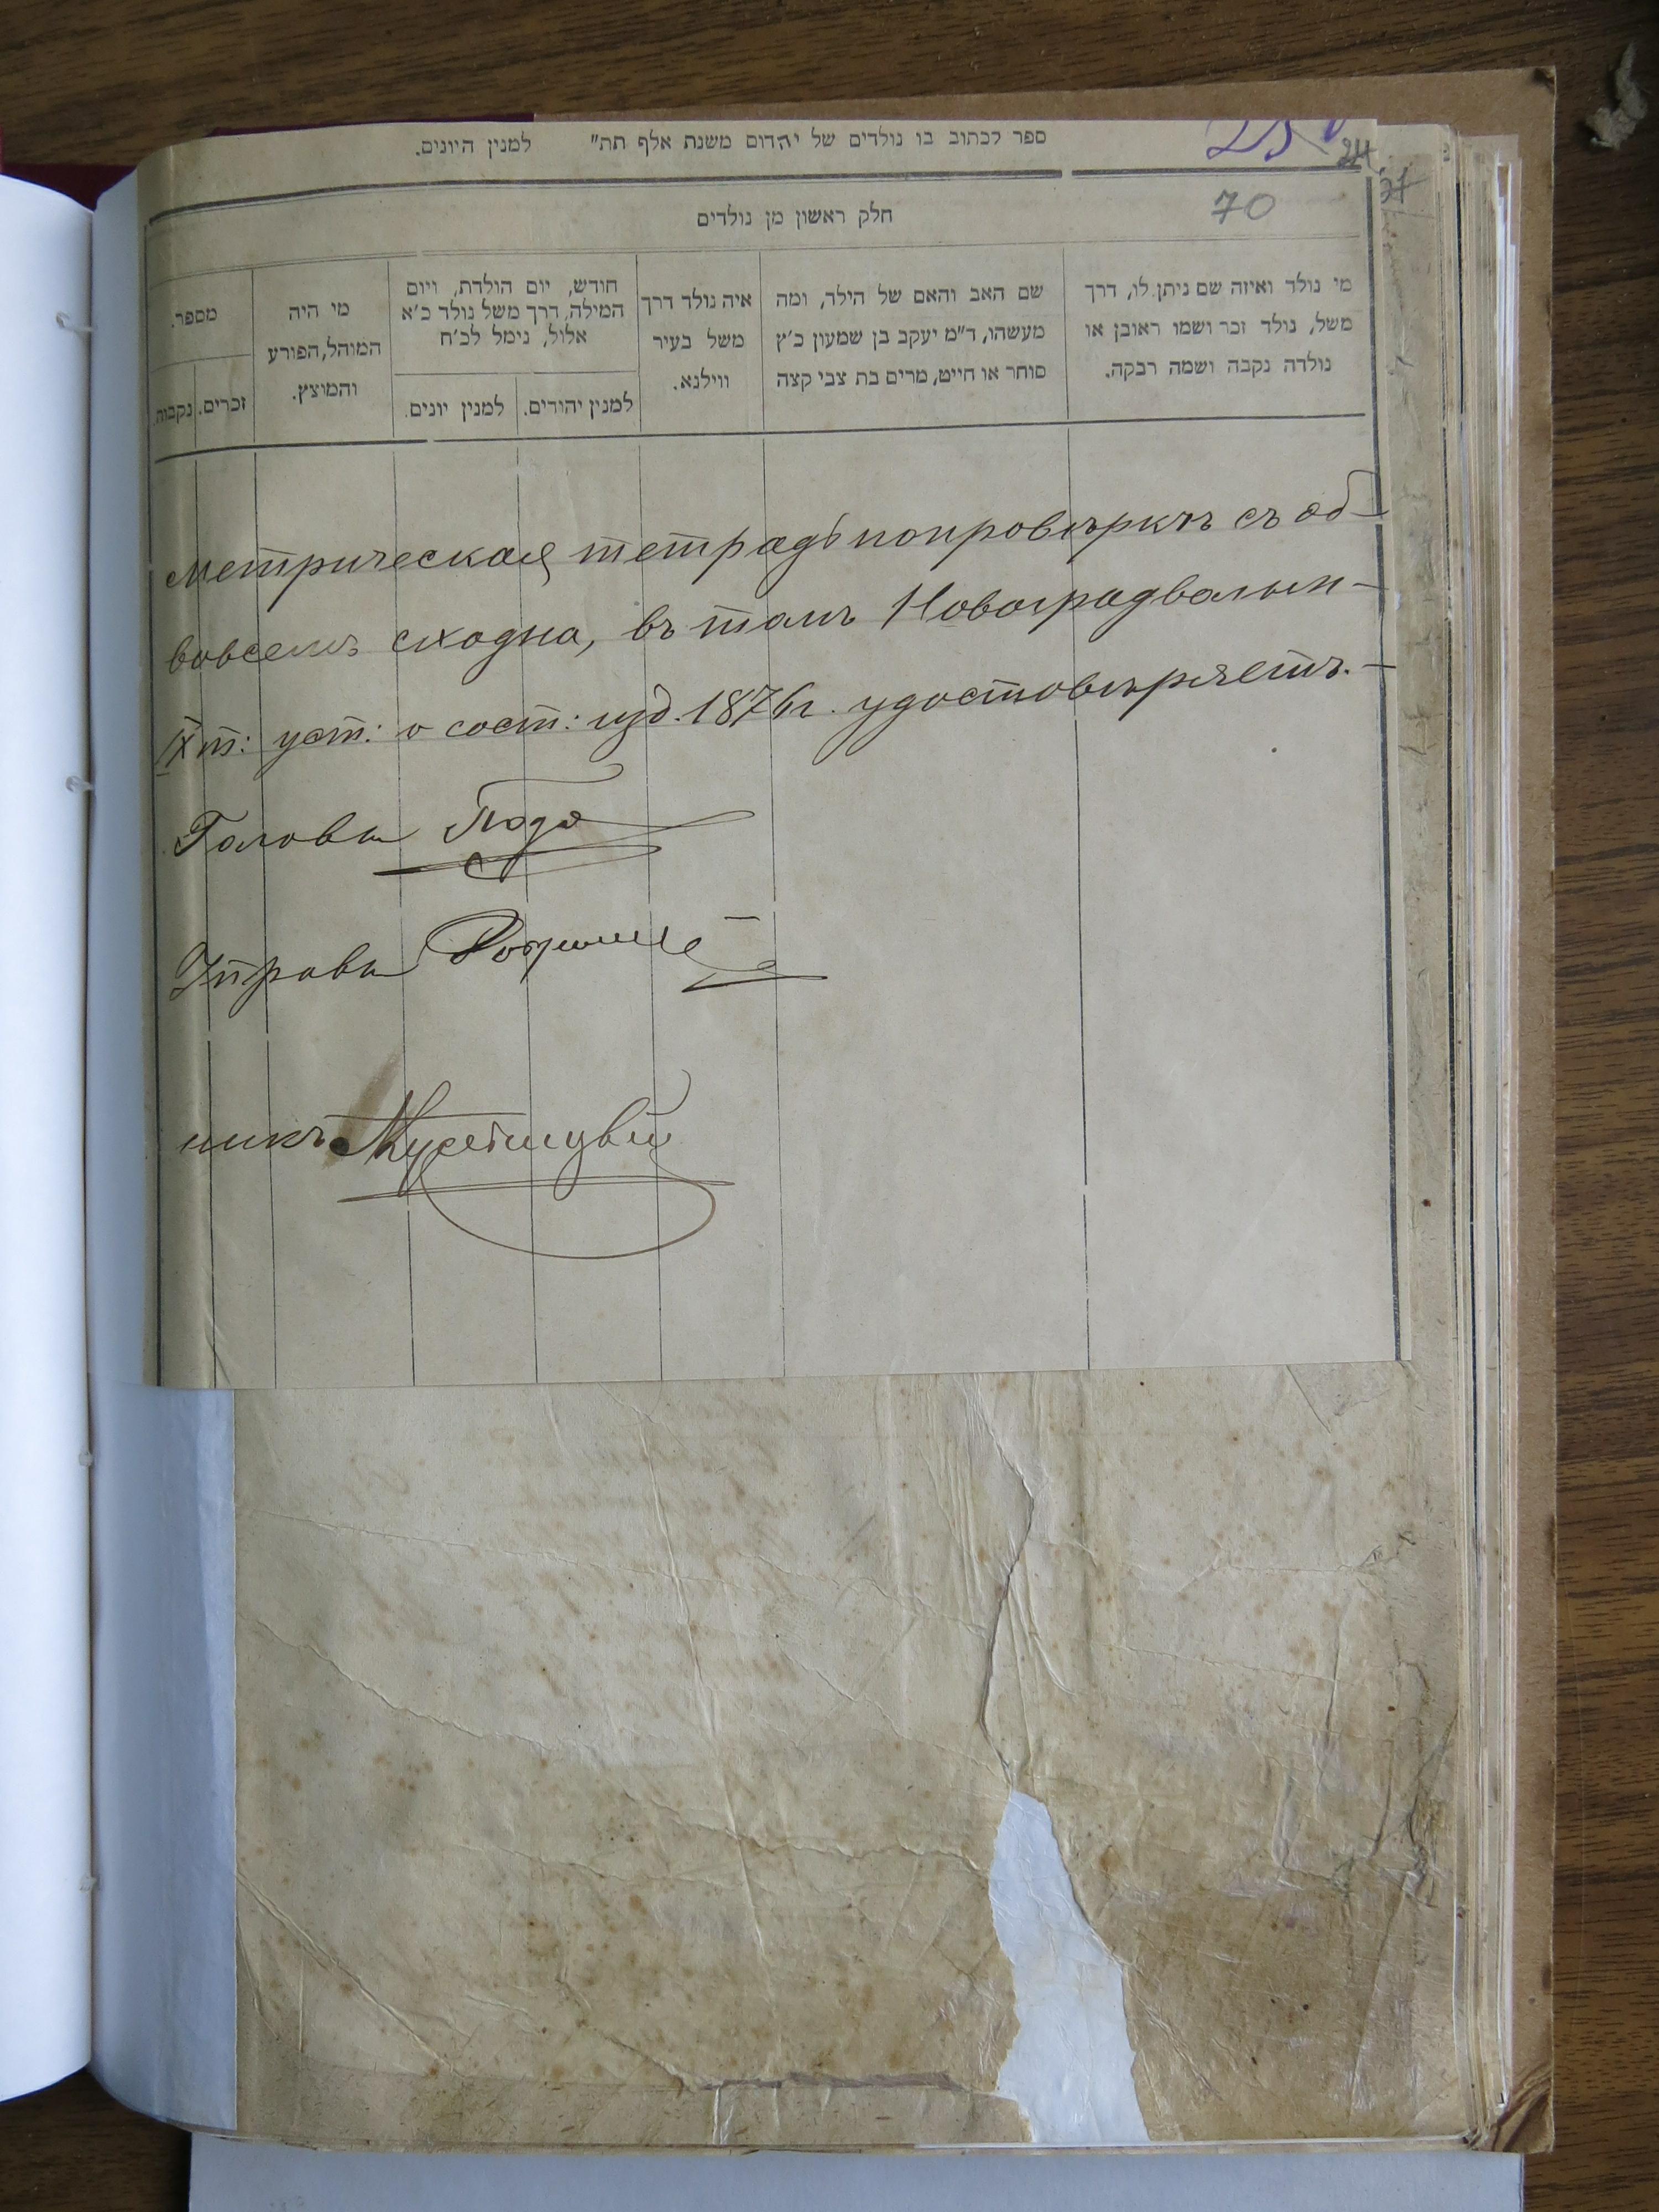 ספר לכתוב בו נולדים של יהדום משנת אלף תת״ למנין היונים.
25
24
חלק ראשון מן נולדים
70
מי נולד ואיזה שם ניתן לו, דרך
משל, נולד זכר ושמו ראובן או
נולדה נקבה ושמה רבקה.
שם האב והאם של הילד, ומה
מעשהו, ד״מ יעקב בן שמעון כ״ץ
סוחר או חייט, מרים בת צבי קצה
איה נולד דרך
משל בעיר
ווילנא.
חודש, יום הולדת, ויום
המילה, דרך משל נולד כ״א
אלול, נימל לכ״ח
למנין יהודים.
למנין יונים.
מי היה
המוהל, הפורע
והמוצץ.
מספר.
זכרים.
נקבות
Метрическая тетрадь по провѣркѣ съ об-
вовсемъ сходна, въ томъ Новоградволын-
IX т: уст: о сост: изд. 1876 г. удостовѣряетъ.-
Голова
Управы
никъ